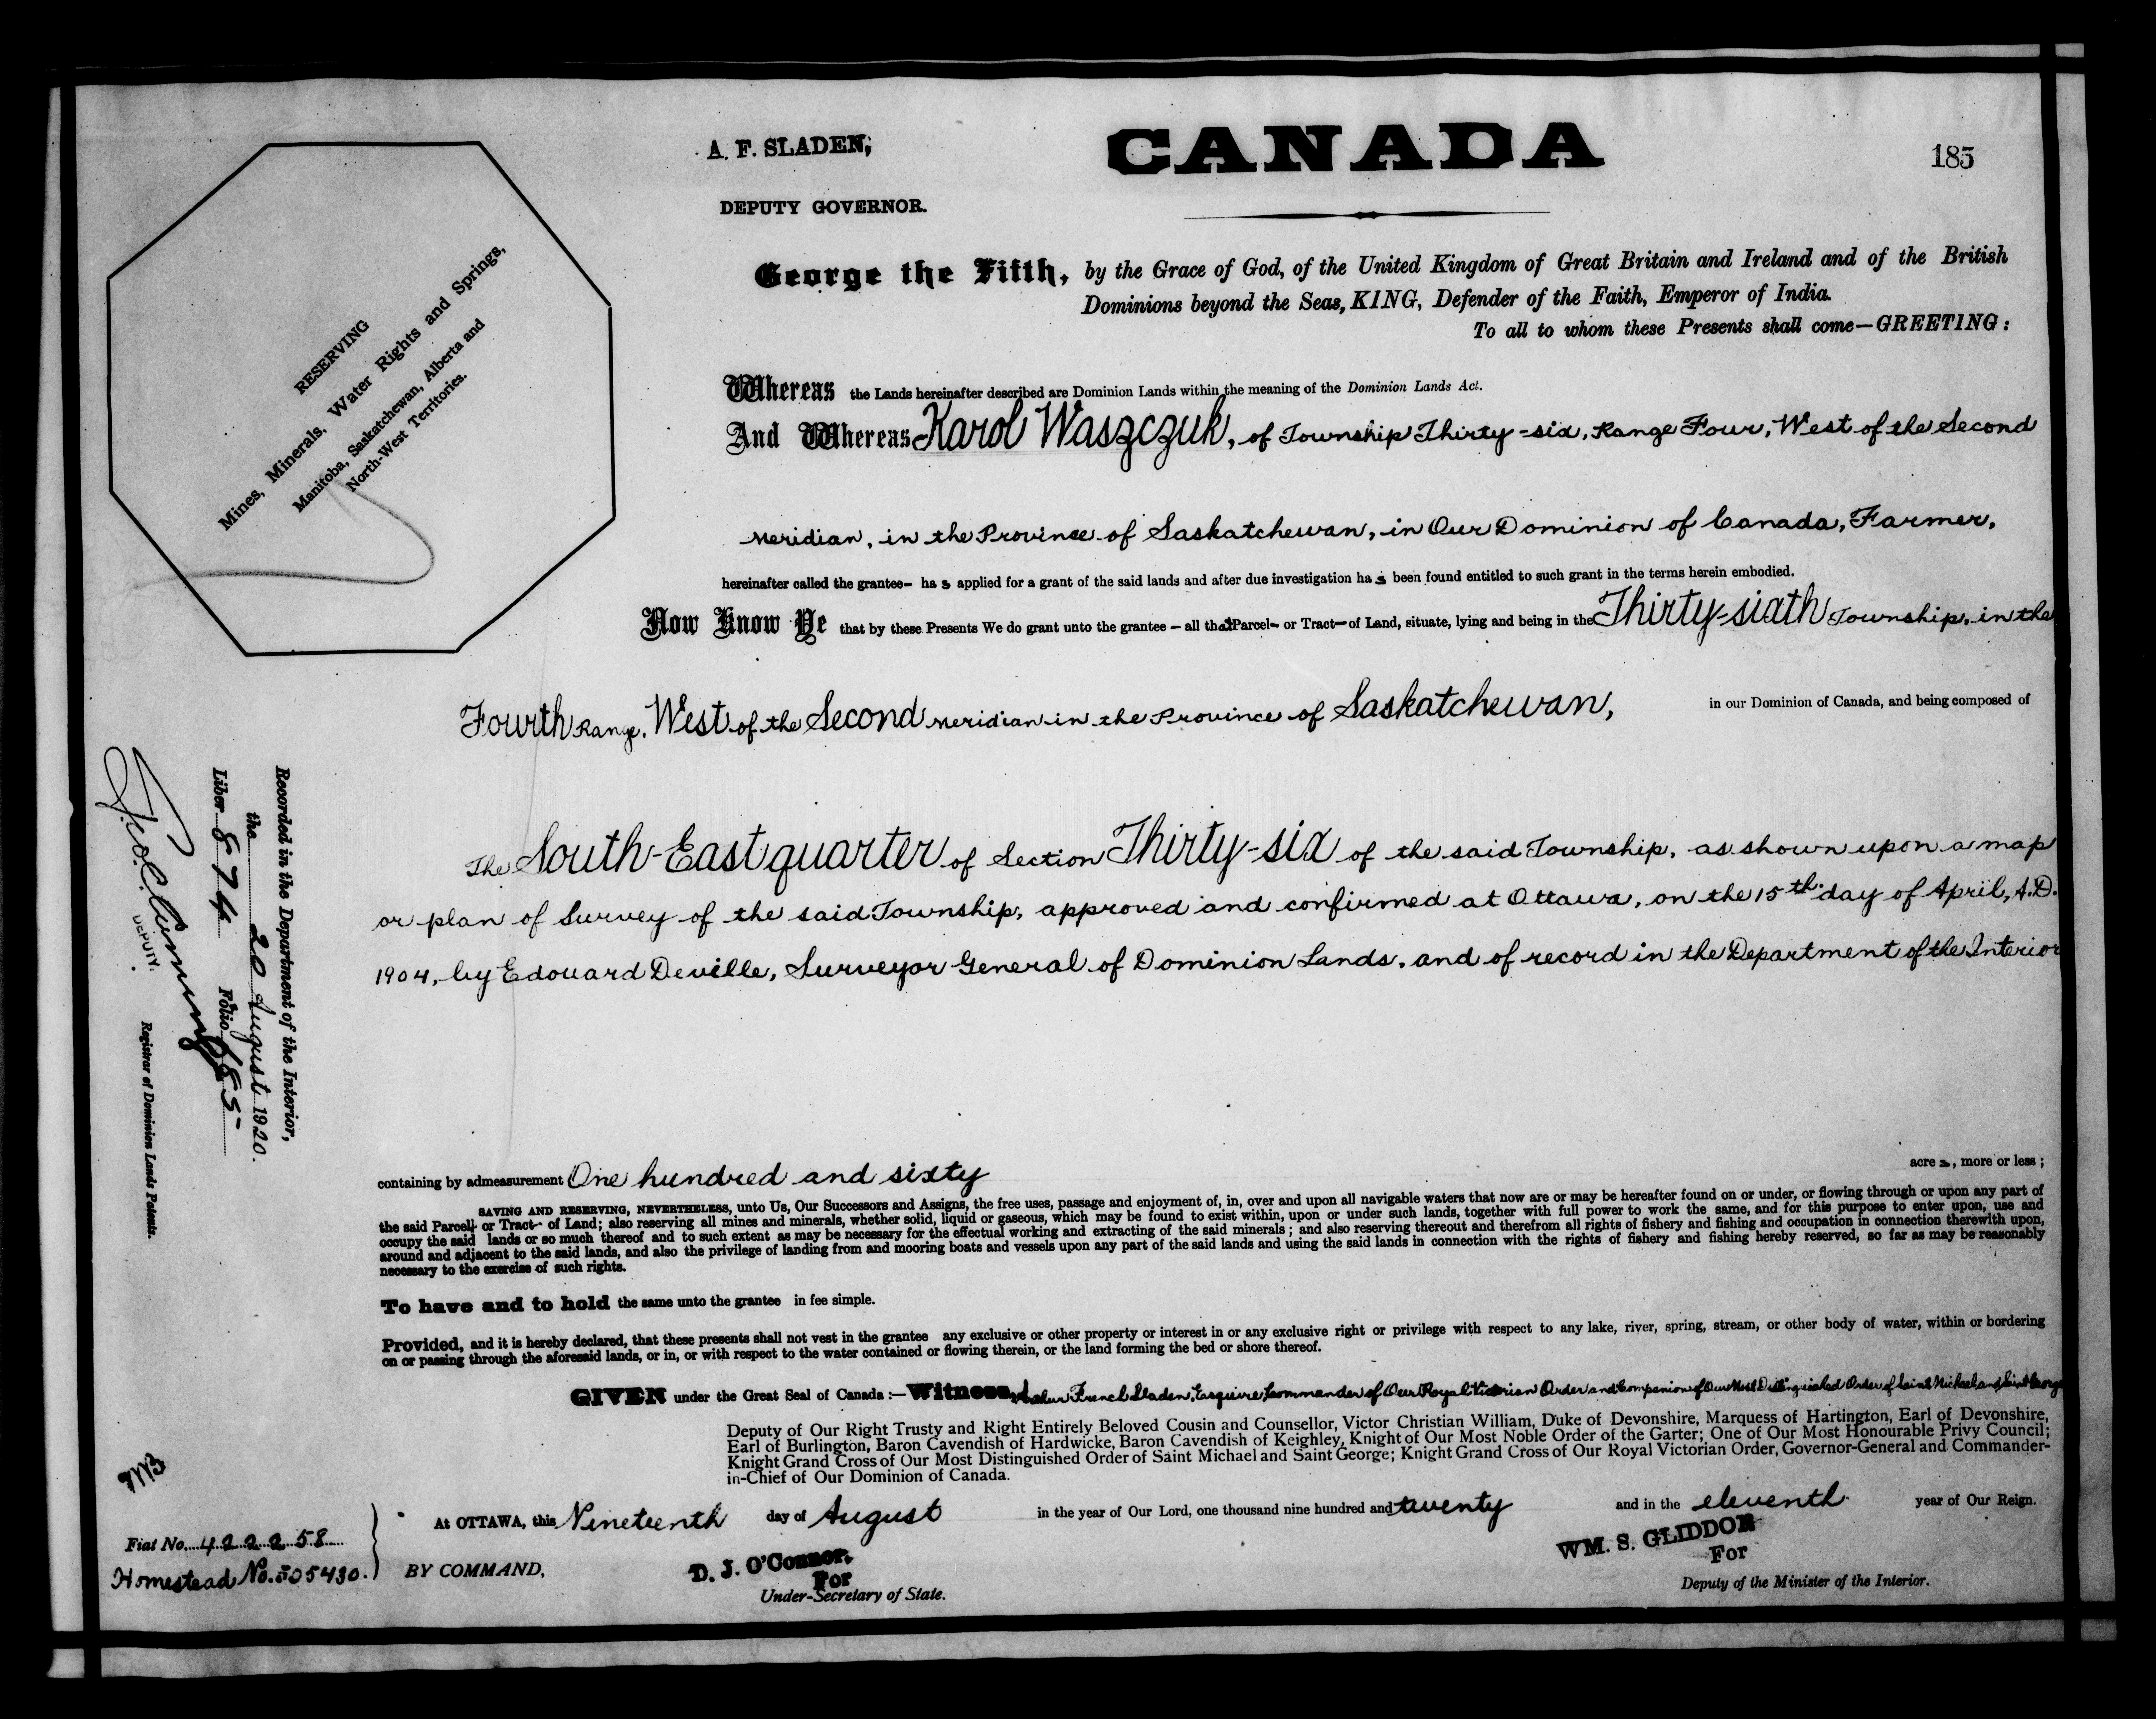 A. F. SLADEN,
DEPUTY GOVERNOR.
CANADA
185
George the Fifth, by the Grace of God, of the United Kingdom of Great Britain and Ireland and of the British
Dominions beyond the Seas, KING, Defender of the Faith, Emperor of India.
To all to whom these Presents shall come—GREETING:
RESERVING
Mines, Minerals, Water Rights and Springs,
Manitoba, Saskatchewan, Alberta and
North-West Territories.
Whereas the Lands hereinafter described are Dominion Lands within the meaning of the Dominion Lands Act.
And Whereas Karol Waszczuk, of Township Thirty-six, Range Four, West of the Second
Meridian, in the Province of Saskatchewan, in Our Dominion of Canada, Farmer,
hereinafter called the grantee— has applied for a grant of the said lands and after due investigation has been found entitled to such grant in the terms herein embodied.
Now Know Ye that by these Presents We do grant unto the grantee — all that Parcel— or Tract— of Land, situate, lying and being in the Thirty-sixth Township, in the
Fourth Range, West of the Second Meridian in the Province of Saskatchewan, in our Dominion of Canada, and being composed of
The South-East quarter of Section Thirty-six of the said Township, as shown upon a map
or plan of Survey of the said Township, approved and confirmed at Ottawa, on the 15th day of April, A.D.
1904, by Edouard Deville, Surveyor General of Dominion Lands, and of record in the Department of the Interior
Recorded in the Department of the Interior,
the 20 August 1920.
Liber 874 Folio 185
DEPUTY.
Registrar of Dominion Lands Patents.
containing by admeasurement One hundred and sixty acres, more or less;
SAVING AND RESERVING, NEVERTHELESS, unto Us, Our Successors and Assigns, the free uses, passage and enjoyment of, in, over and upon all navigable waters that now are or may be hereafter found on or under, or flowing through or upon any part of
the said Parcel— or Tract— of Land; also reserving all mines and minerals, whether solid, liquid or gaseous, which may be found to exist within, upon or under such lands, together with full power to work the same, and for this purpose to enter upon, use and
occupy the said lands or so much thereof and to such extent as may be necessary for the effectual working and extracting of the said minerals; and also reserving thereout and therefrom all rights of fishery and fishing and occupation in connection therewith upon,
around and adjacent to the said lands, and also the privilege of landing from and mooring boats and vessels upon any part of the said lands and using the said lands in connection with the rights of fishery and fishing hereby reserved, so far as may be reasonably
necessary to the exercise of such rights.
To have and to hold the same unto the grantee in fee simple.
Provided, and it is hereby declared, that these presents shall not vest in the grantee any exclusive or other property or interest in or any exclusive right or privilege with respect to any lake, river, spring, stream, or other body of water, within or bordering
on or passing through the aforesaid lands, or in, or with respect to the water contained or flowing therein, or the land forming the bed or shore thereof.
GIVEN under the Great Seal of Canada:—Witness, Arthur French Sladen, Esquire, Commander of Our Royal Victorian Order and Companion of Our Most Distinguished Order of Saint Michael and Saint George
Deputy of Our Right Trusty and Right Entirely Beloved Cousin and Counsellor, Victor Christian William, Duke of Devonshire, Marquess of Hartington, Earl of Devonshire,
Earl of Burlington, Baron Cavendish of Hardwicke, Baron Cavendish of Keighley, Knight of Our Most Noble Order of the Garter; One of Our Most Honourable Privy Council;
Knight Grand Cross of Our Most Distinguished Order of Saint Michael and Saint George; Knight Grand Cross of Our Royal Victorian Order, Governor-General and Commander-
in-Chief of Our Dominion of Canada.
At OTTAWA, this Nineteenth day of August in the year of Our Lord, one thousand nine hundred and twenty and in the eleventh year of Our Reign.
Fiat No. 422258
Homestead No. 505430.
BY COMMAND,
D. J. O'Connor,
For
Under-Secretary of State.
WM. S. GLIDDON
For
Deputy of the Minister of the Interior.